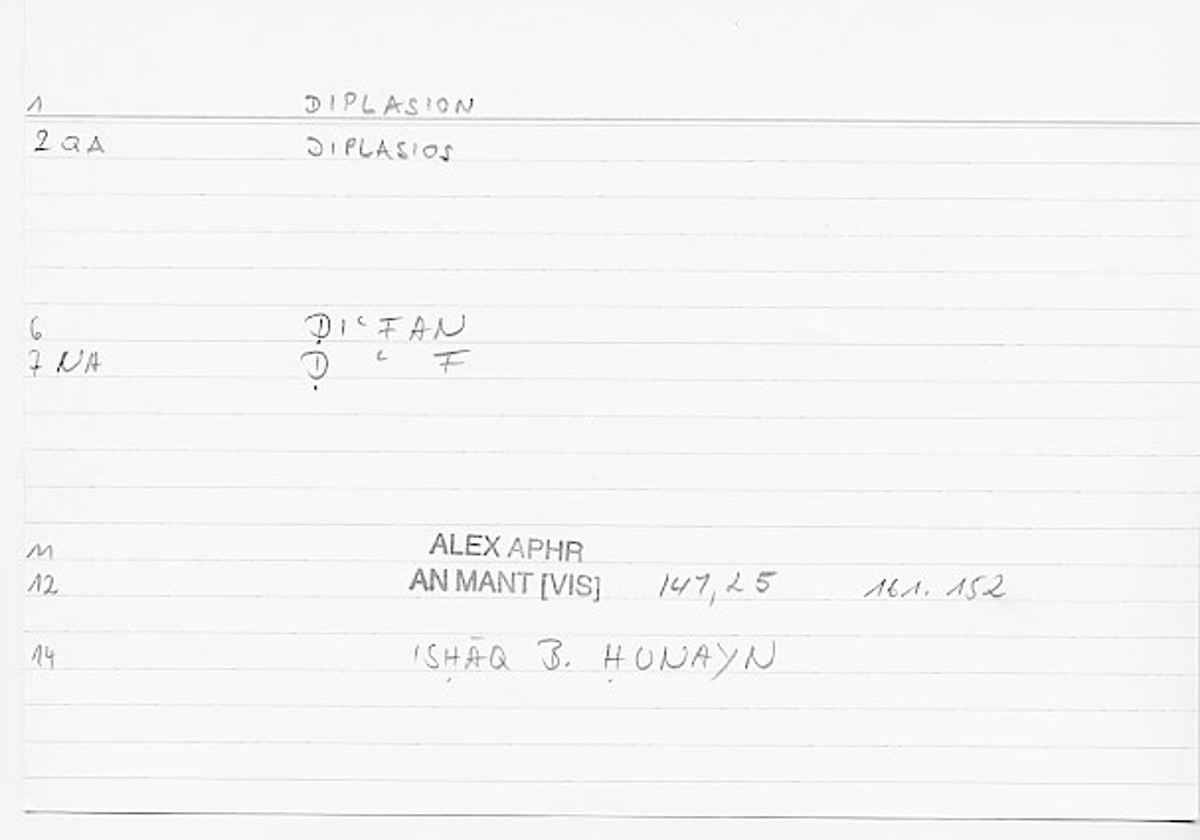 1 DIPLASION
2 QA DIPLASIOS
6 ḌIʿFAN
7 NA Ḍ ʿ F
11 ALEX APHR
12 AN MANT [VIS] 147,25 161. 152
14 ISḤĀQ B. ḤUNAYN